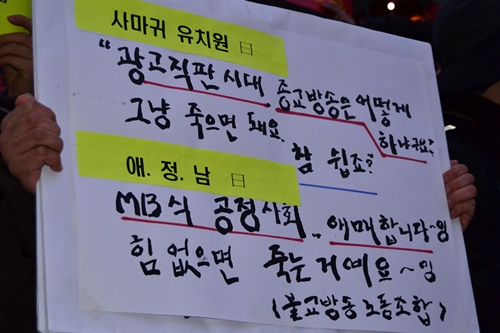 사마귀 유치원 曰
“광고직판시대 종교방송은 어떻게
하냐구요?
그냥 죽으면 돼요.
참 쉽죠?
애.정.남 曰
MB식 공정사회.. 애매합니다~잉
힘 없으면 죽는거예요~잉
(불교방송 노동조합)